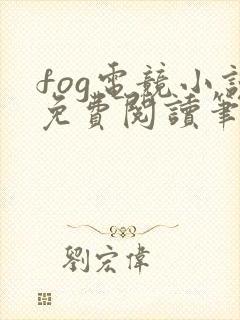 fog電競小說
免費閱讀筆
劉宏偉